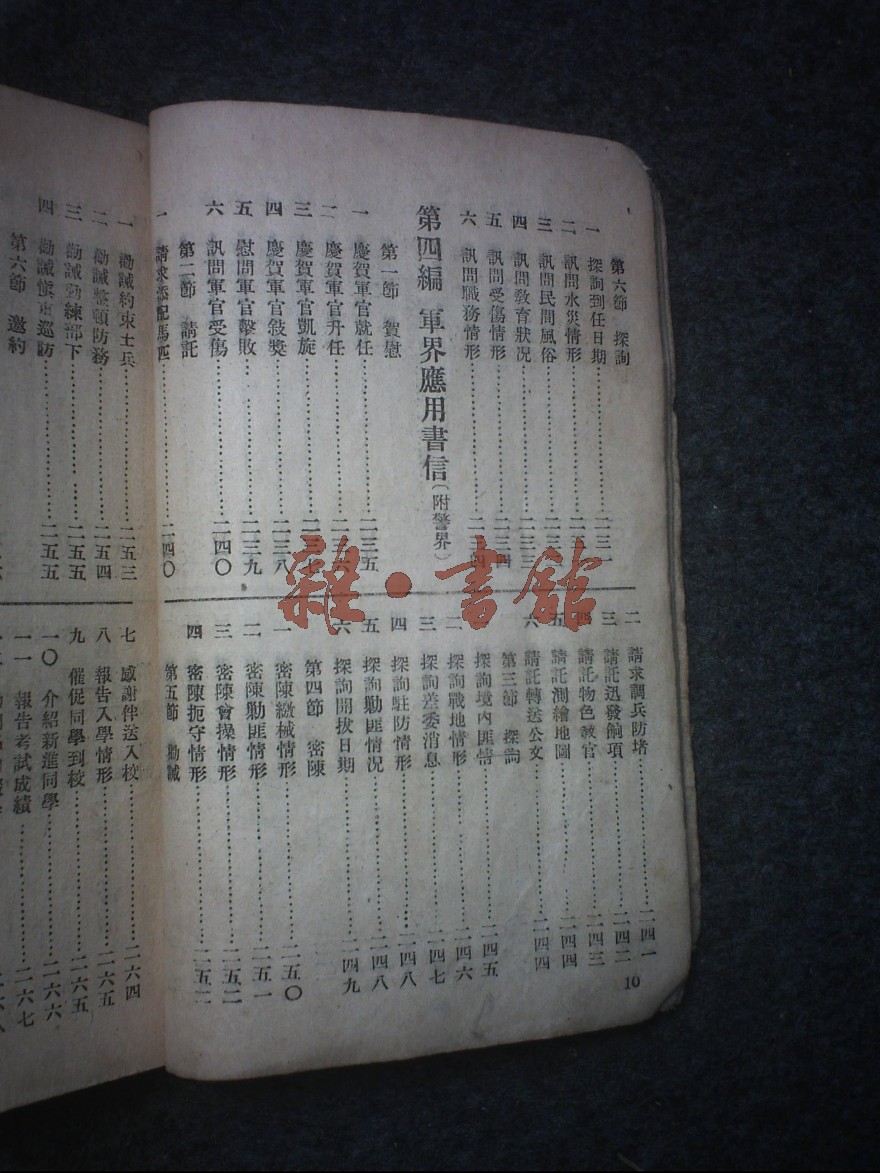 第六節 探詢
一 探詢到任日期……二三一
二 訊問水災情形……二三二
三 訊問民間風俗……二三三
四 訊問教育狀況……二三三
五 訊問受傷情形……二三四
六 訊問職務情形……二三四
第四編 軍界應用書信(附警界)
第一節 賀慰
一 慶賀軍官就任……二三五
二 慶賀軍官升任……二三六
三 慶賀軍官凱旋……二三七
四 慶賀軍官敍獎……二三八
五 慰問軍官擊敗……二三九
六 訊問軍官受傷……二四〇
第二節 請託
一 請求添配馬匹……二四〇
二 請求調兵防堵……二四一
三 請託迅發餉項……二四二
四 請託物色教官……二四三
五 請託測繪地圖……二四四
六 請託轉送公文……二四四
第三節 探詢
探詢境內匪情……二四五
二 探詢戰地情形……二四六
三 探詢差委消息……二四七
四 探詢駐防情形……二四八
五 探詢勦匪情况……二四八
六 探詢開拔日期……二四九
第四節 密陳
一 密陳繳械情形……二五〇
二 密陳勦匪情形……二五一
三 密陳會操情形……二五二
四 密陳扼守情形……二五二
第五節 勸誡
10
一 勸誡約束士兵……二五三
二 勸誡整頓防務……二五四
三 勸誡勤練部下……二五五
四 勸誡慎重巡防……二五五
第六節 邀約
七 感謝伴送入校……二六四
八 報告入學情形……二六五
九 催促同學到校……二六五
一〇 介紹新進同學……二六六
一一 報告考試成績……二六七
雜·書館